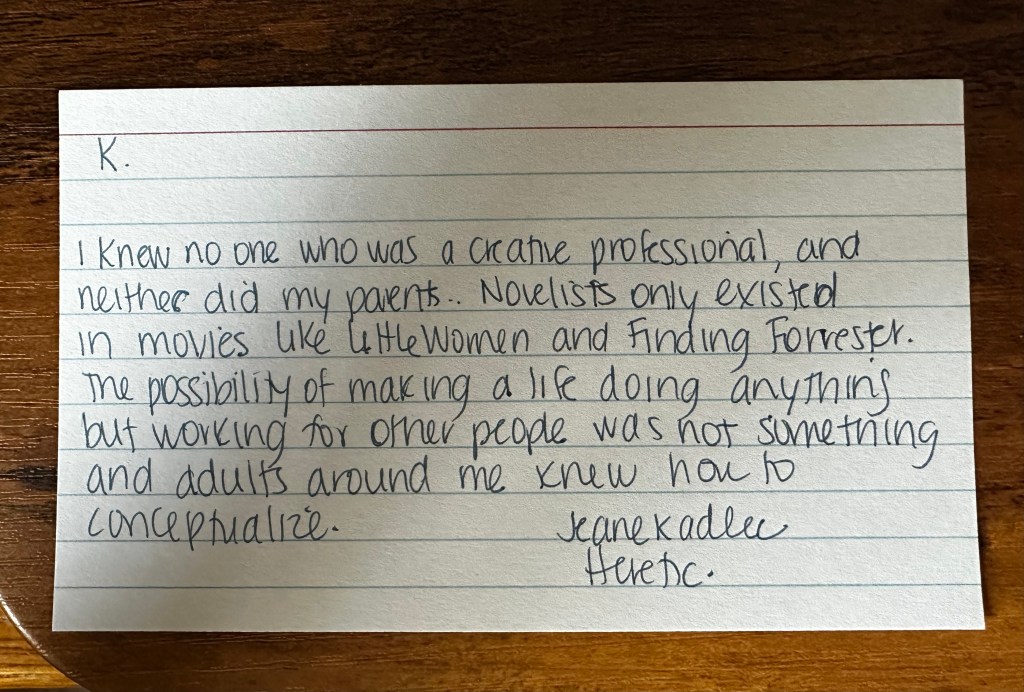 K.
I knew no one who was a creative professional, and
neither did my parents.. Novelists only existed
in movies like Little Women and Finding Forrester.
The possibility of making a life doing anything
but working for other people was not something
and adults around me knew how to
conceptualize.
Jeane Kadlec
Heretic.